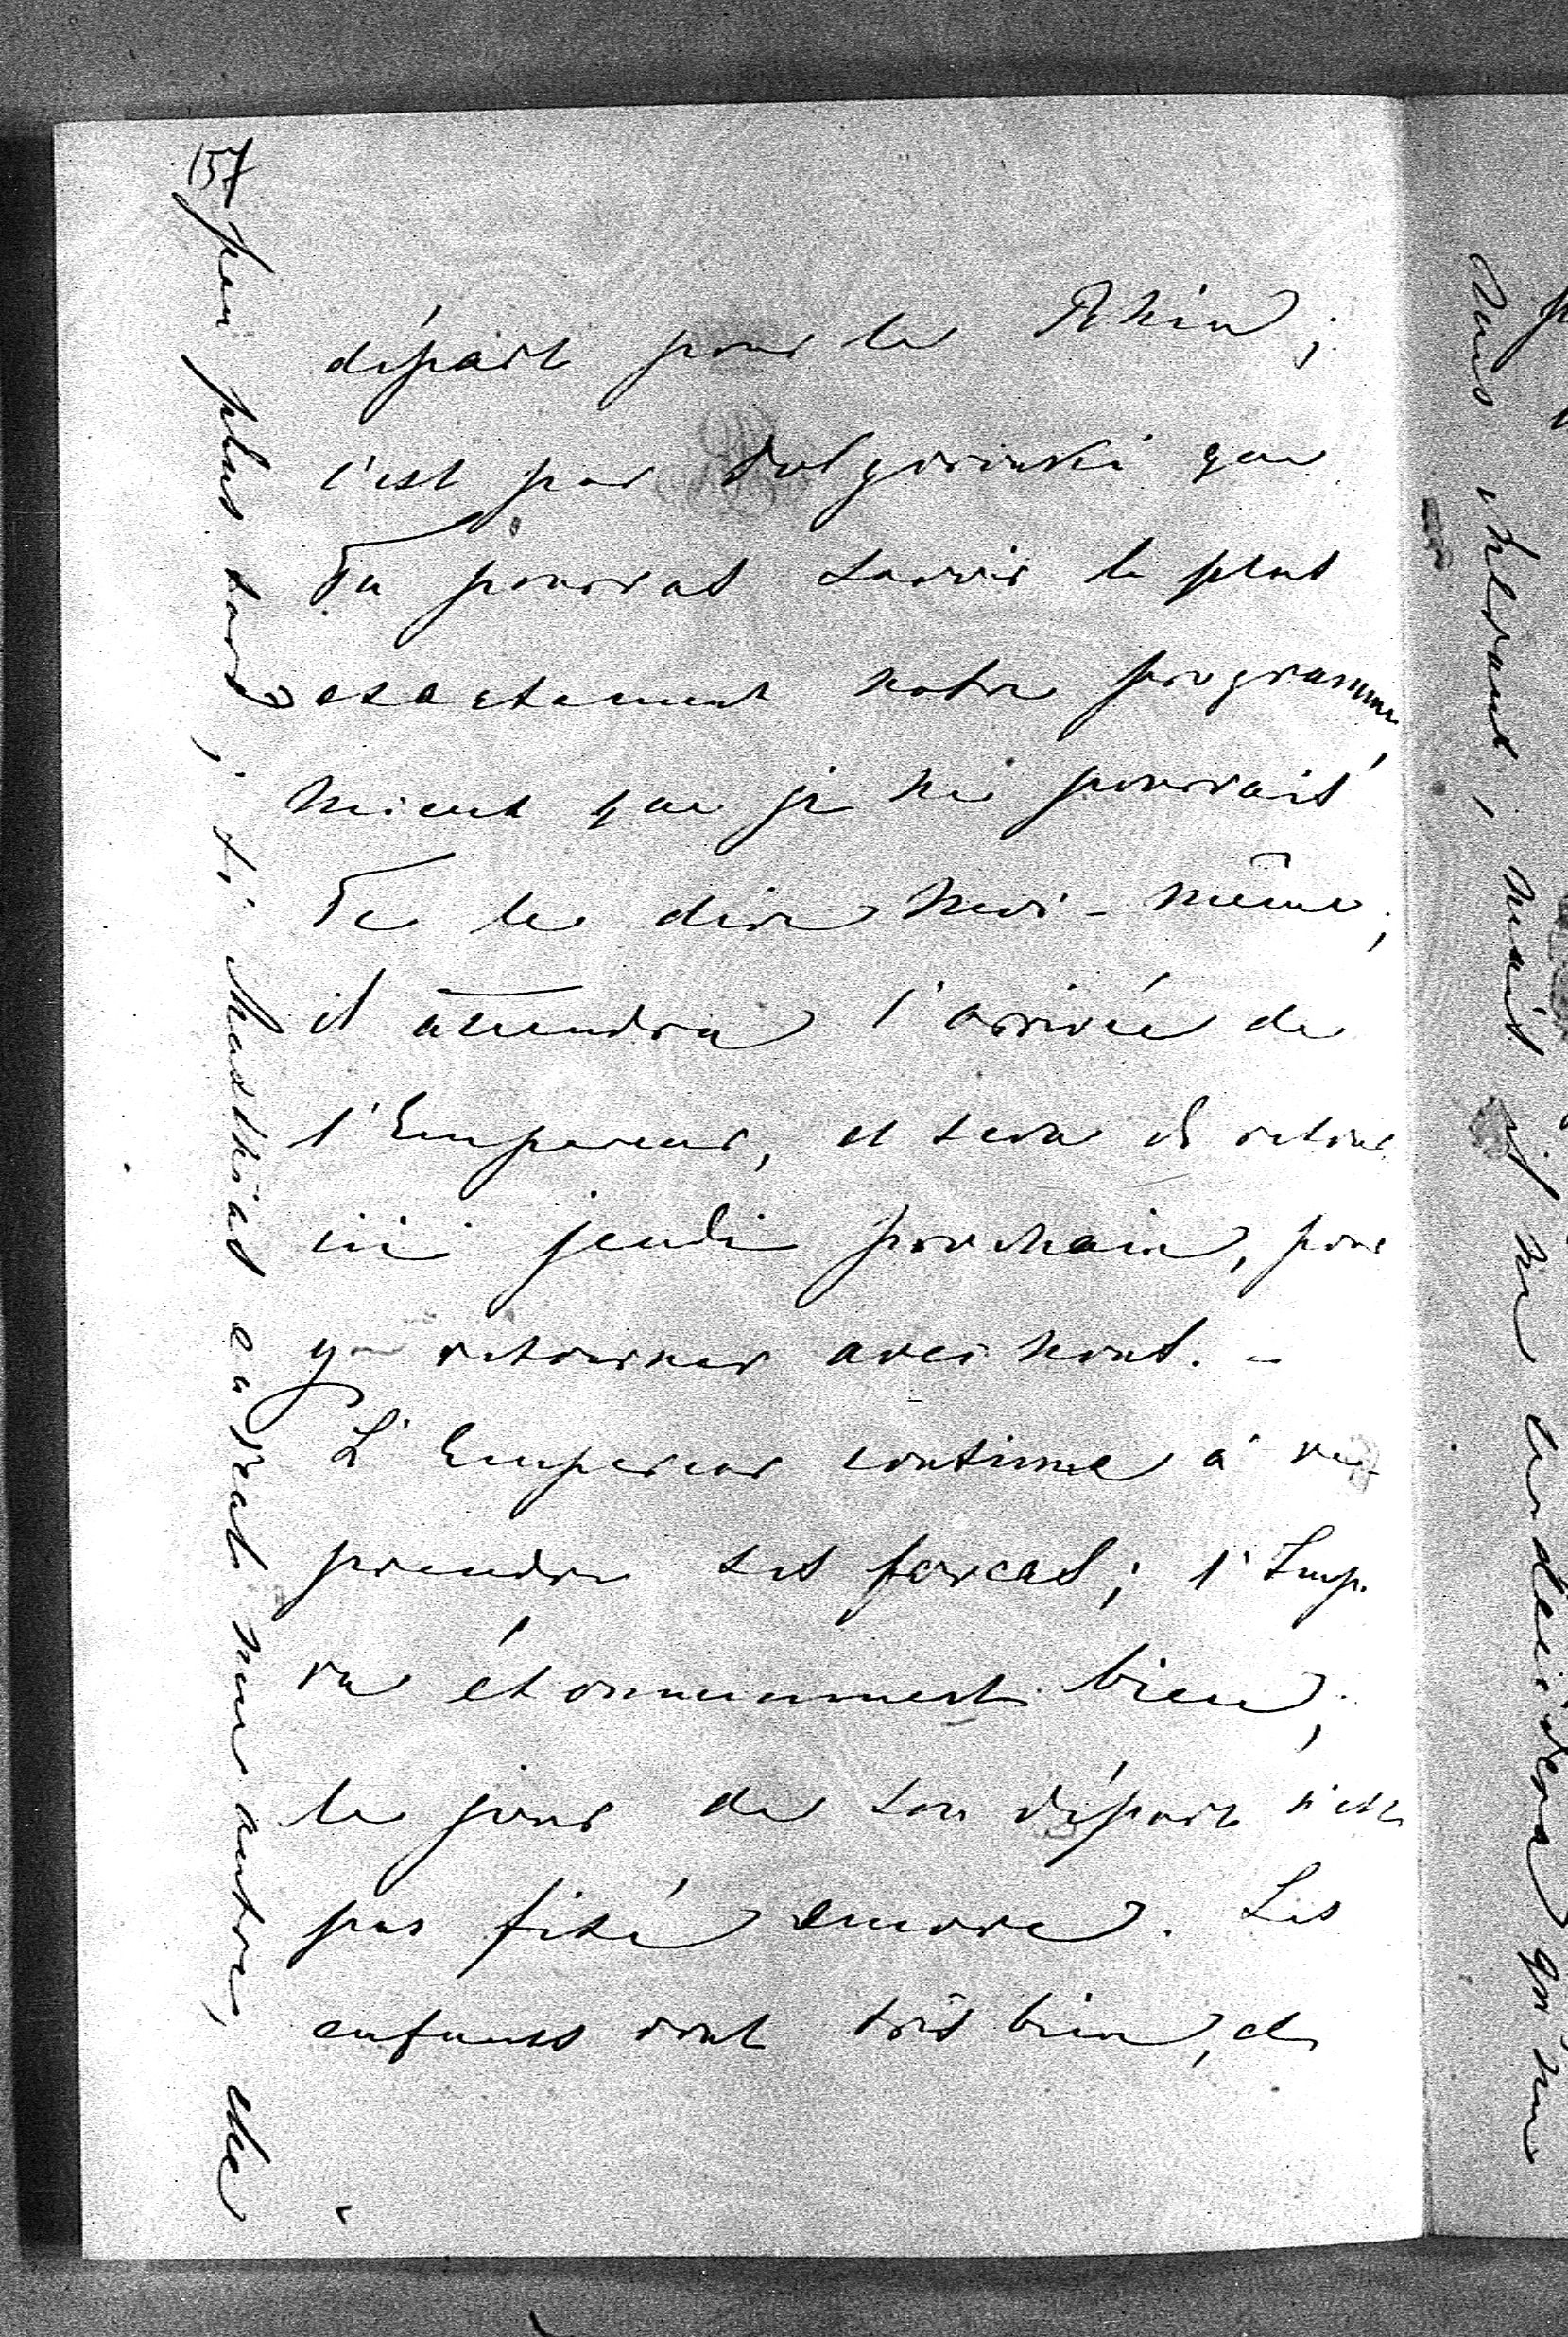 157
départ pour le Rhin;
c'est par Dolgorouki que
Tu pourras savoir le plus
exactement notre programme,
mieux que je ne pourrais
Te le dire moi-même;
il attendra l'arrivée de
l'Empereur, et sera de retour
ici jeudi prochain, pour
y retourner avec nous. -
L'Empereur continue à re-
prendre ses forces; l'Imp.
va étonnemment bien;
le jour de son départ n'est
pas fixé encore. Les
enfants vont très bien, et
peu plus tard; si Matthias envoyait une autre, elle
mais il ne
qu'une